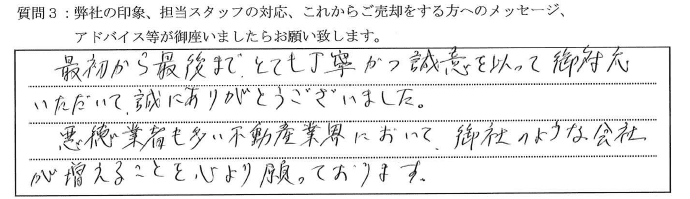 質問3：弊社の印象、担当スタッフの対応、これからご売却をする方へのメッセージ、
アドバイス等が御座いましたらお願い致します。
最初から最後まで、とても丁寧かつ誠意を以って御対応
いただいて、誠にありがとうございました。
悪徳業者も多い不動産業界において、御社のような会社
が増えることを心より願っております。